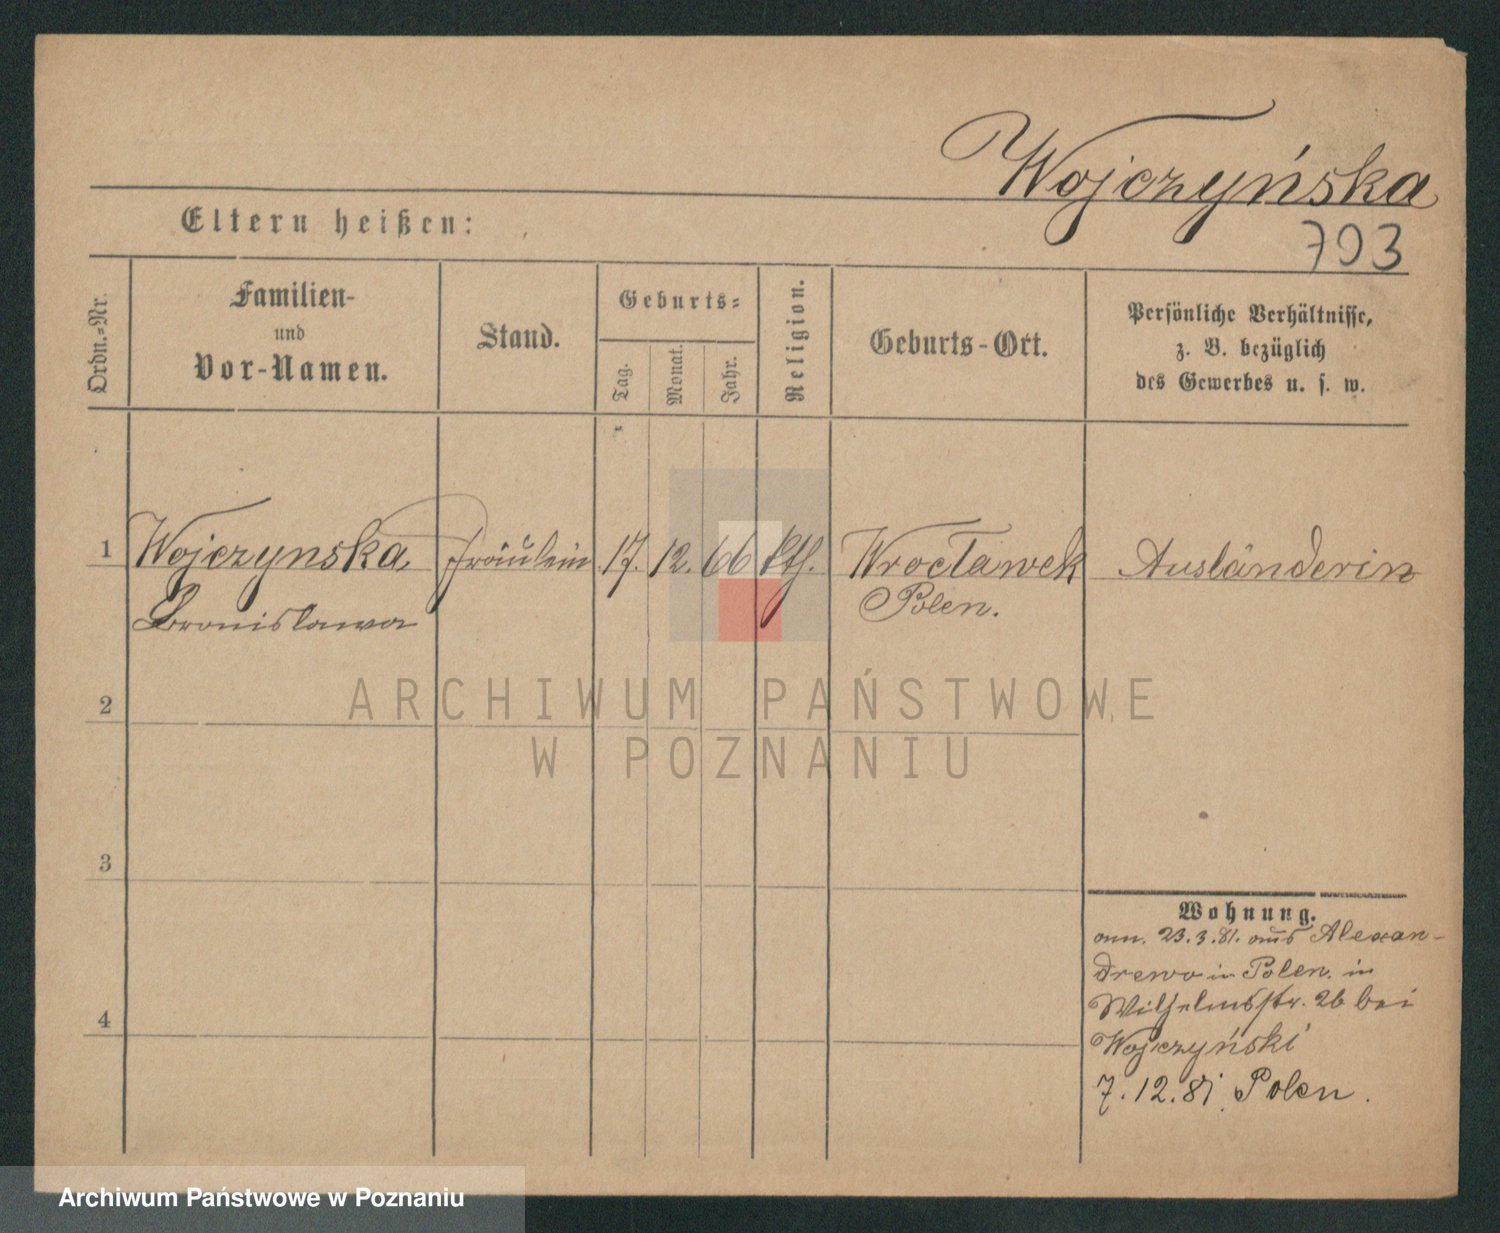 Wojczyńska
Eltern heißen:
793
Ordn.-Nr.
Familien-
und
Vor-Namen.
Stand.
Geburts-
Tag.
Monat.
Jahr.
Religion.
Geburts-Ort.
Persönliche Verhältnisse,
z. B. bezüglich
des Gewerbes u. s. w.
1 Wojczynska Fräulein 17. 12. 66 kth. Wrocławek Ausländerin
Bronislawa Polen.
2
ARCHIWUM PAŃSTWOWE
W POZNANIU
3
Wohnung.
ann. 23.3.81. aus Alexan-
drewo in Polen. in
Wilhelmsstr. 26 bei
Wojczyński
4
7.12.81. Polen.
Archiwum Państwowe w Poznaniu